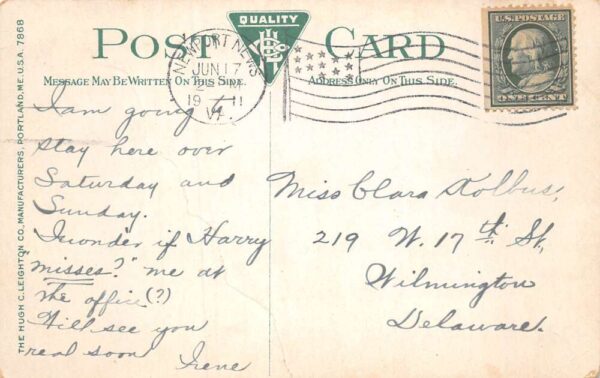 POST CARD
QUALITY
MESSAGE MAY BE WRITTEN ON THIS SIDE.
ADDRESS ONLY ON THIS SIDE.
NEWPORT NEWS
JUN 17
19 11
VA.
U.S. POSTAGE
ONE CENT
THE HUGH C. LEIGHTON CO., MANUFACTURERS, PORTLAND, ME. U.S.A. 7868
I am going
stay here over
Saturday and
Sunday.
I wonder if Harry
"misses?" me at
the office (?)
Will see you
real soon Irene
Miss Clara Kolbus,
219 W. 17th St,
Wilmington
Delaware.